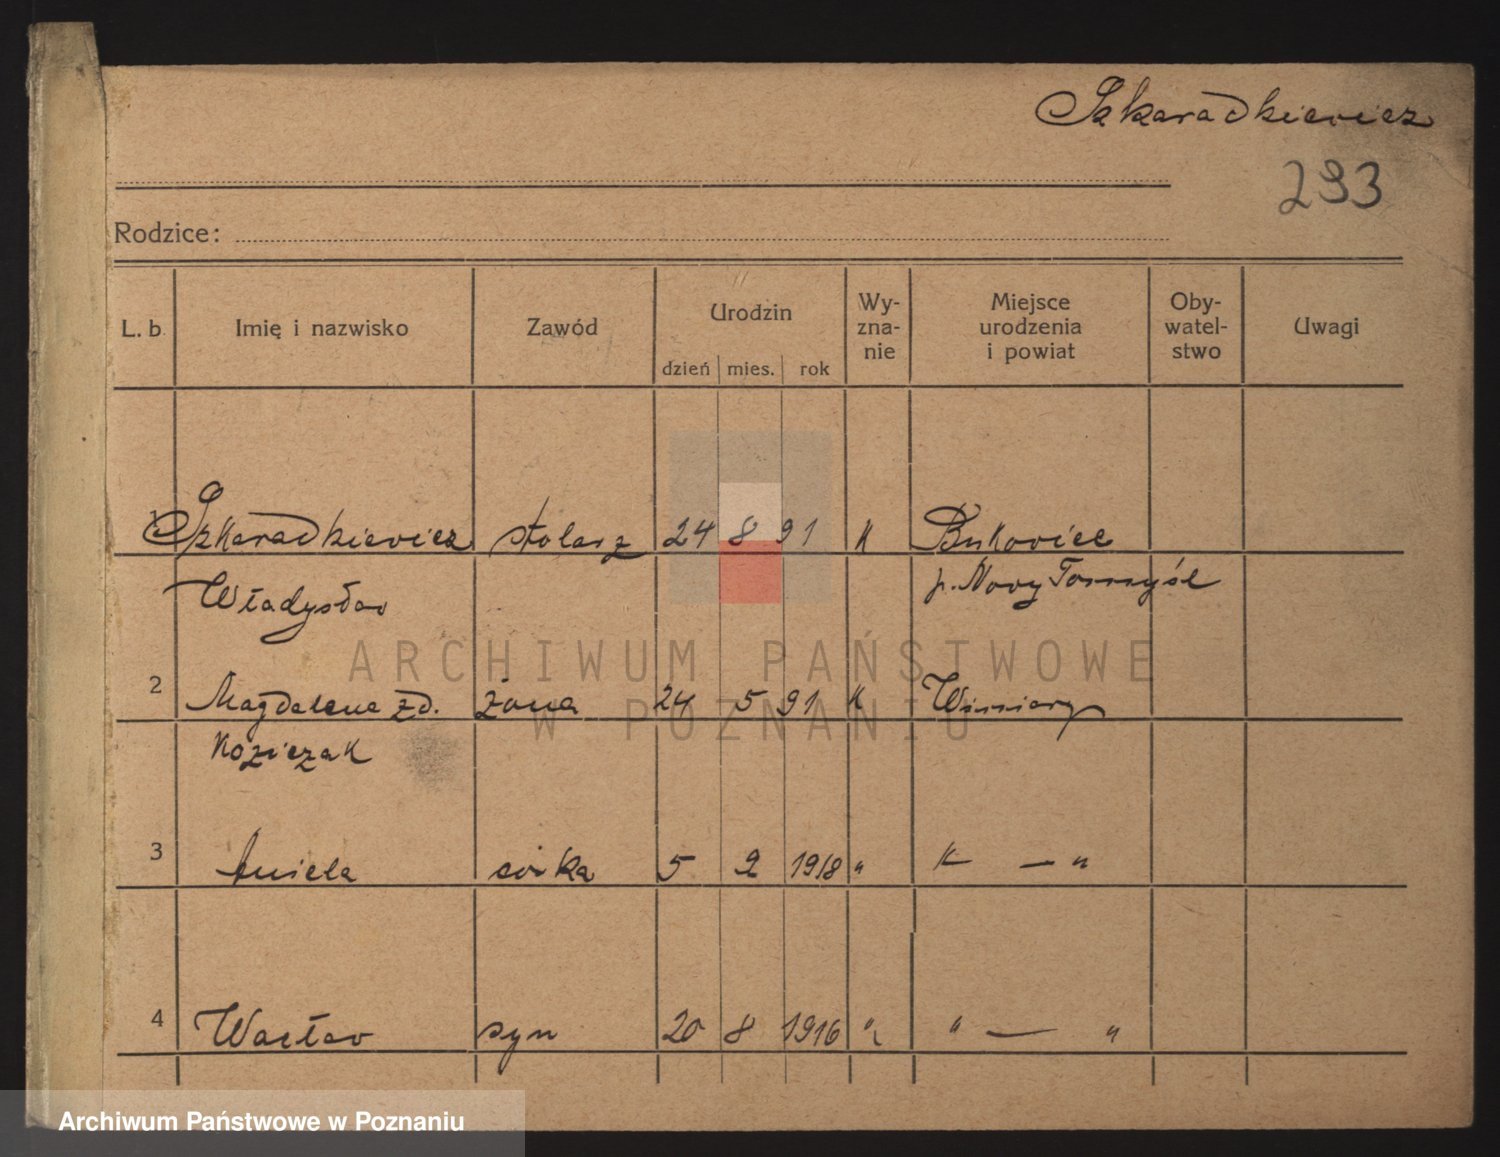 Szkaradkiewicz
293
Rodzice:
L. b. Imię i nazwisko Zawód Urodzin dzień mies. rok Wy-zna-nie Miejsce urodzenia i powiat Oby-watel-stwo Uwagi
1 Szkaradkiewicz stolarz 24 8 91 K Bukowiec
Władysław p. Nowy Tomyśl
2 Magdalena zd. żona 24 5 91 K Winiary
Koziczak
3 Aniela córka 5 2 1918 " " — "
4 Wacław syn 20 8 1916 " " — "
ARCHIWUM PAŃSTWOWE
W POZNANIU
Archiwum Państwowe w Poznaniu